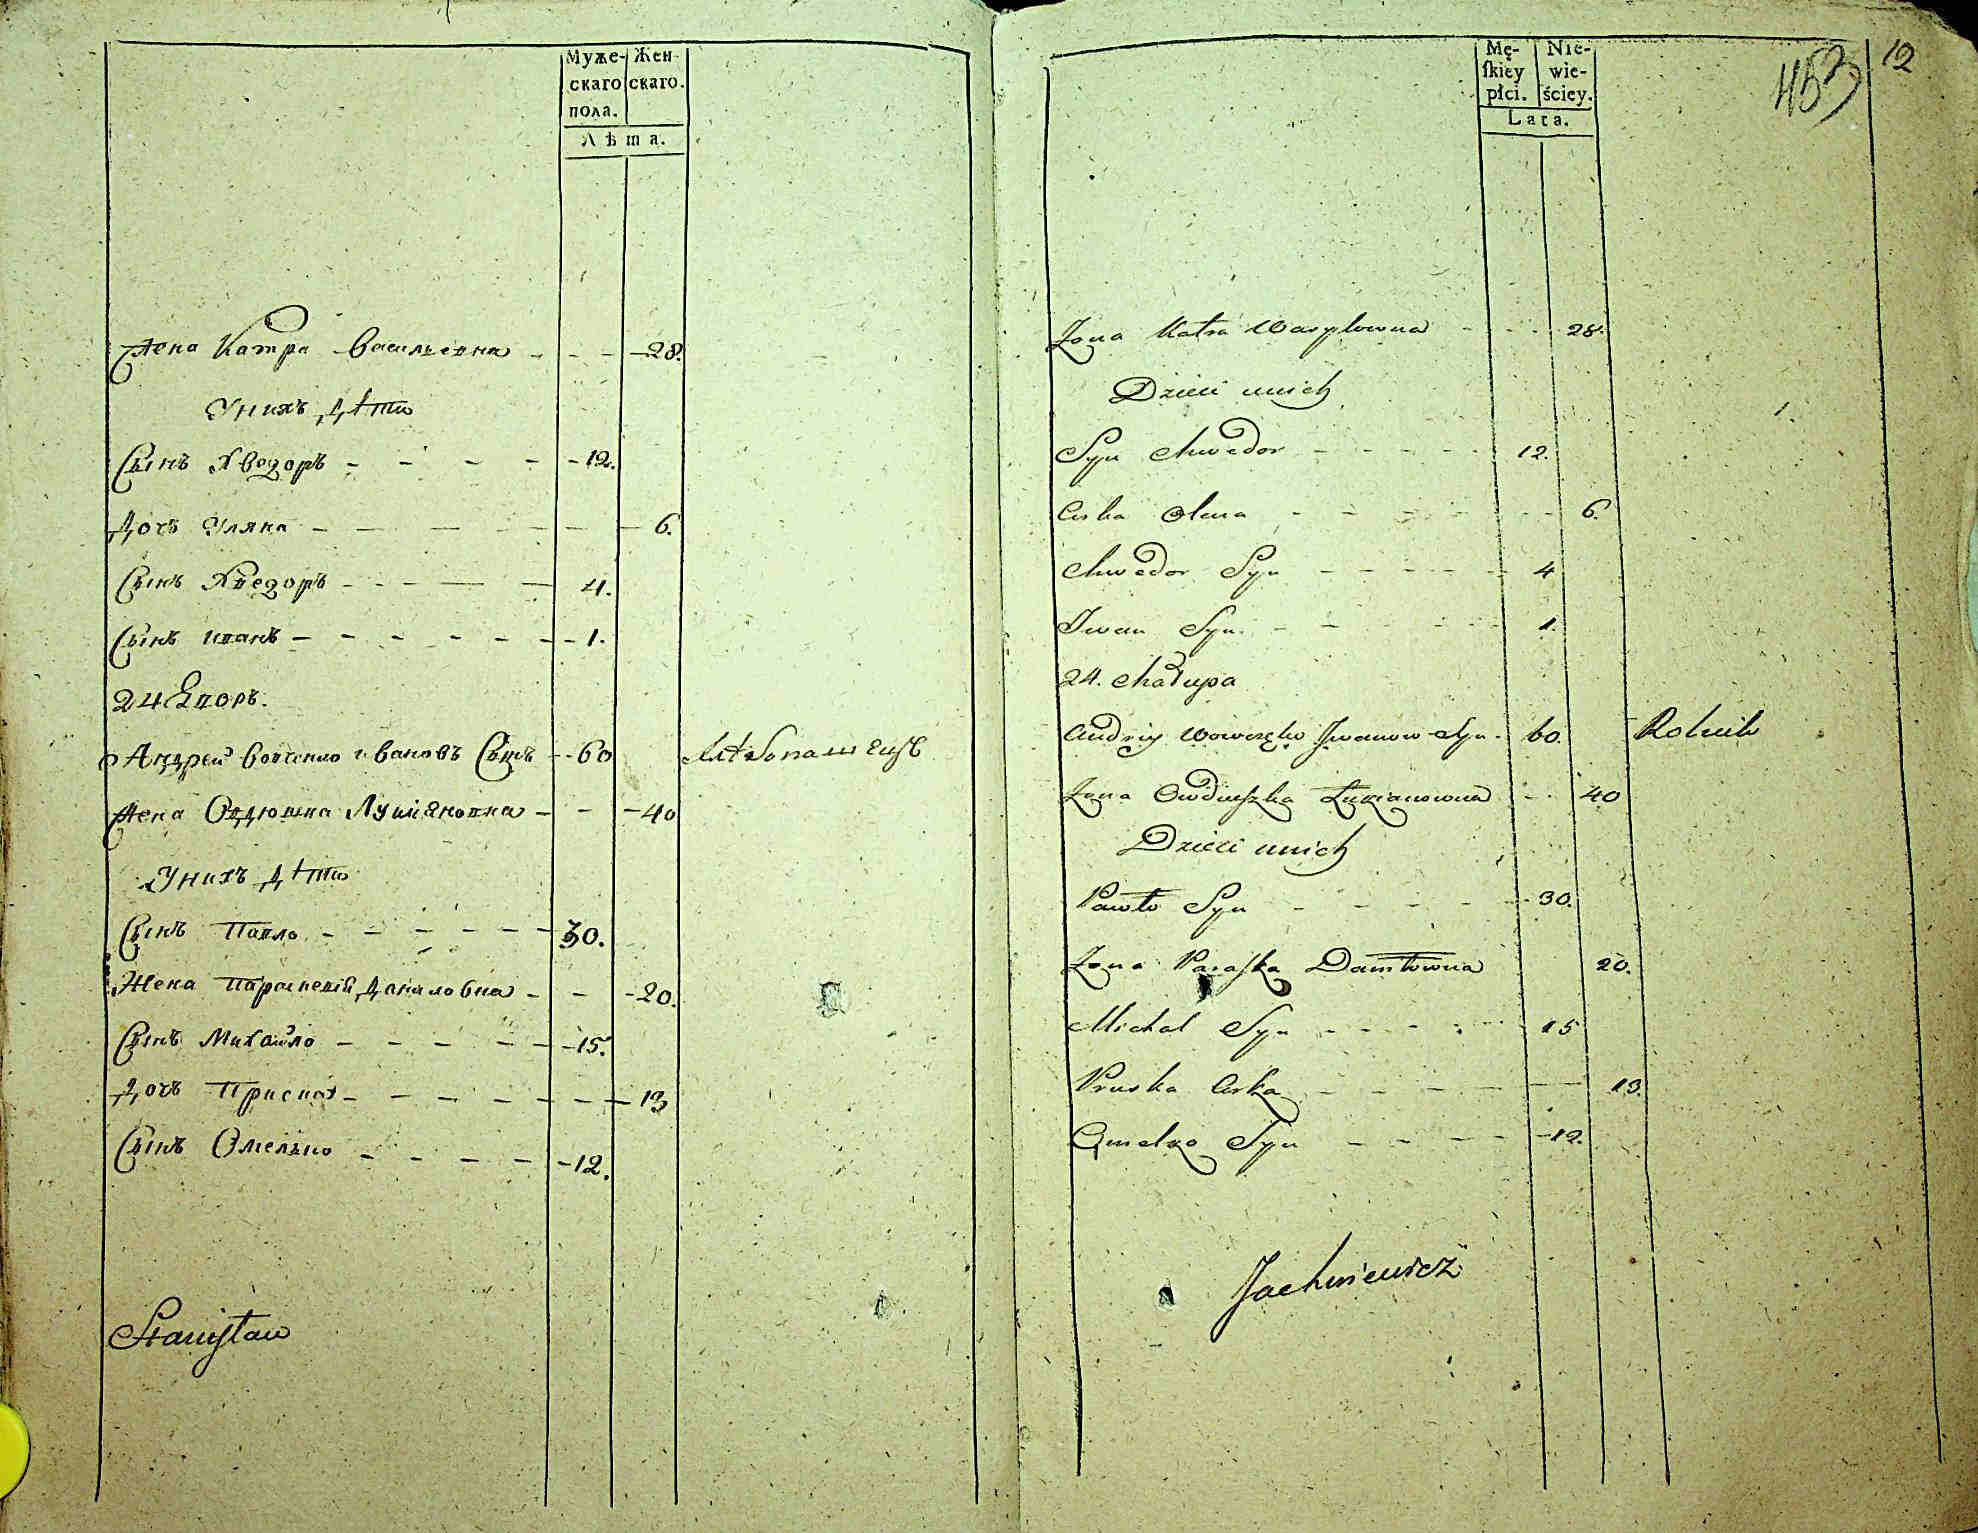 Муже-
скаго
пола.
Жен-
скаго.
Лѣта.
Жена Катра Васильевна - - - 28.
У нихъ дѣти
Сынъ Хведоръ - - - - 12.
Дочь Уляна - - - - 6.
Сынъ Хведоръ - - - - 4.
Сынъ Иванъ - - - - - - 1.
24 Дворъ.
Андрей Ивановъ Сынъ - - 60
Жена Овдюшка Лукіановна - - - 40
У нихъ дѣти
Сынъ Павло - - - - - - 30.
Жена Параскевія Даниловна - - - 20.
Сынъ Михайло - - - - - - 15.
Дочь Приська - - - - - - 13
Сынъ Омелько - - - - - 12.
Stanisław
12
453
Mę-
skiey
płci.
Nie-
wie-
ściey.
Lata.
Żona Katra Wasylowna - - - 28.
Dzieci u nich
Syn Chwedor - - - - - 12.
Corka Olena - - - - - - 6.
Chwedor Syn - - - - - - 4
Iwan Syn - - - - - 1.
24. Chałupa
Andriy Iwanow Syn - 60. Rolnik
Żona Owdiuszka Łukianowna - - 40
Dzieci u nich
Pawło Syn - - - - - - 30.
Żona Paraska Daniłowna 20.
Michał Syn - - - - - 15
Pruska Corka - - - - - - 13.
Omelko Syn - - - - - 12.
Jachniewicz